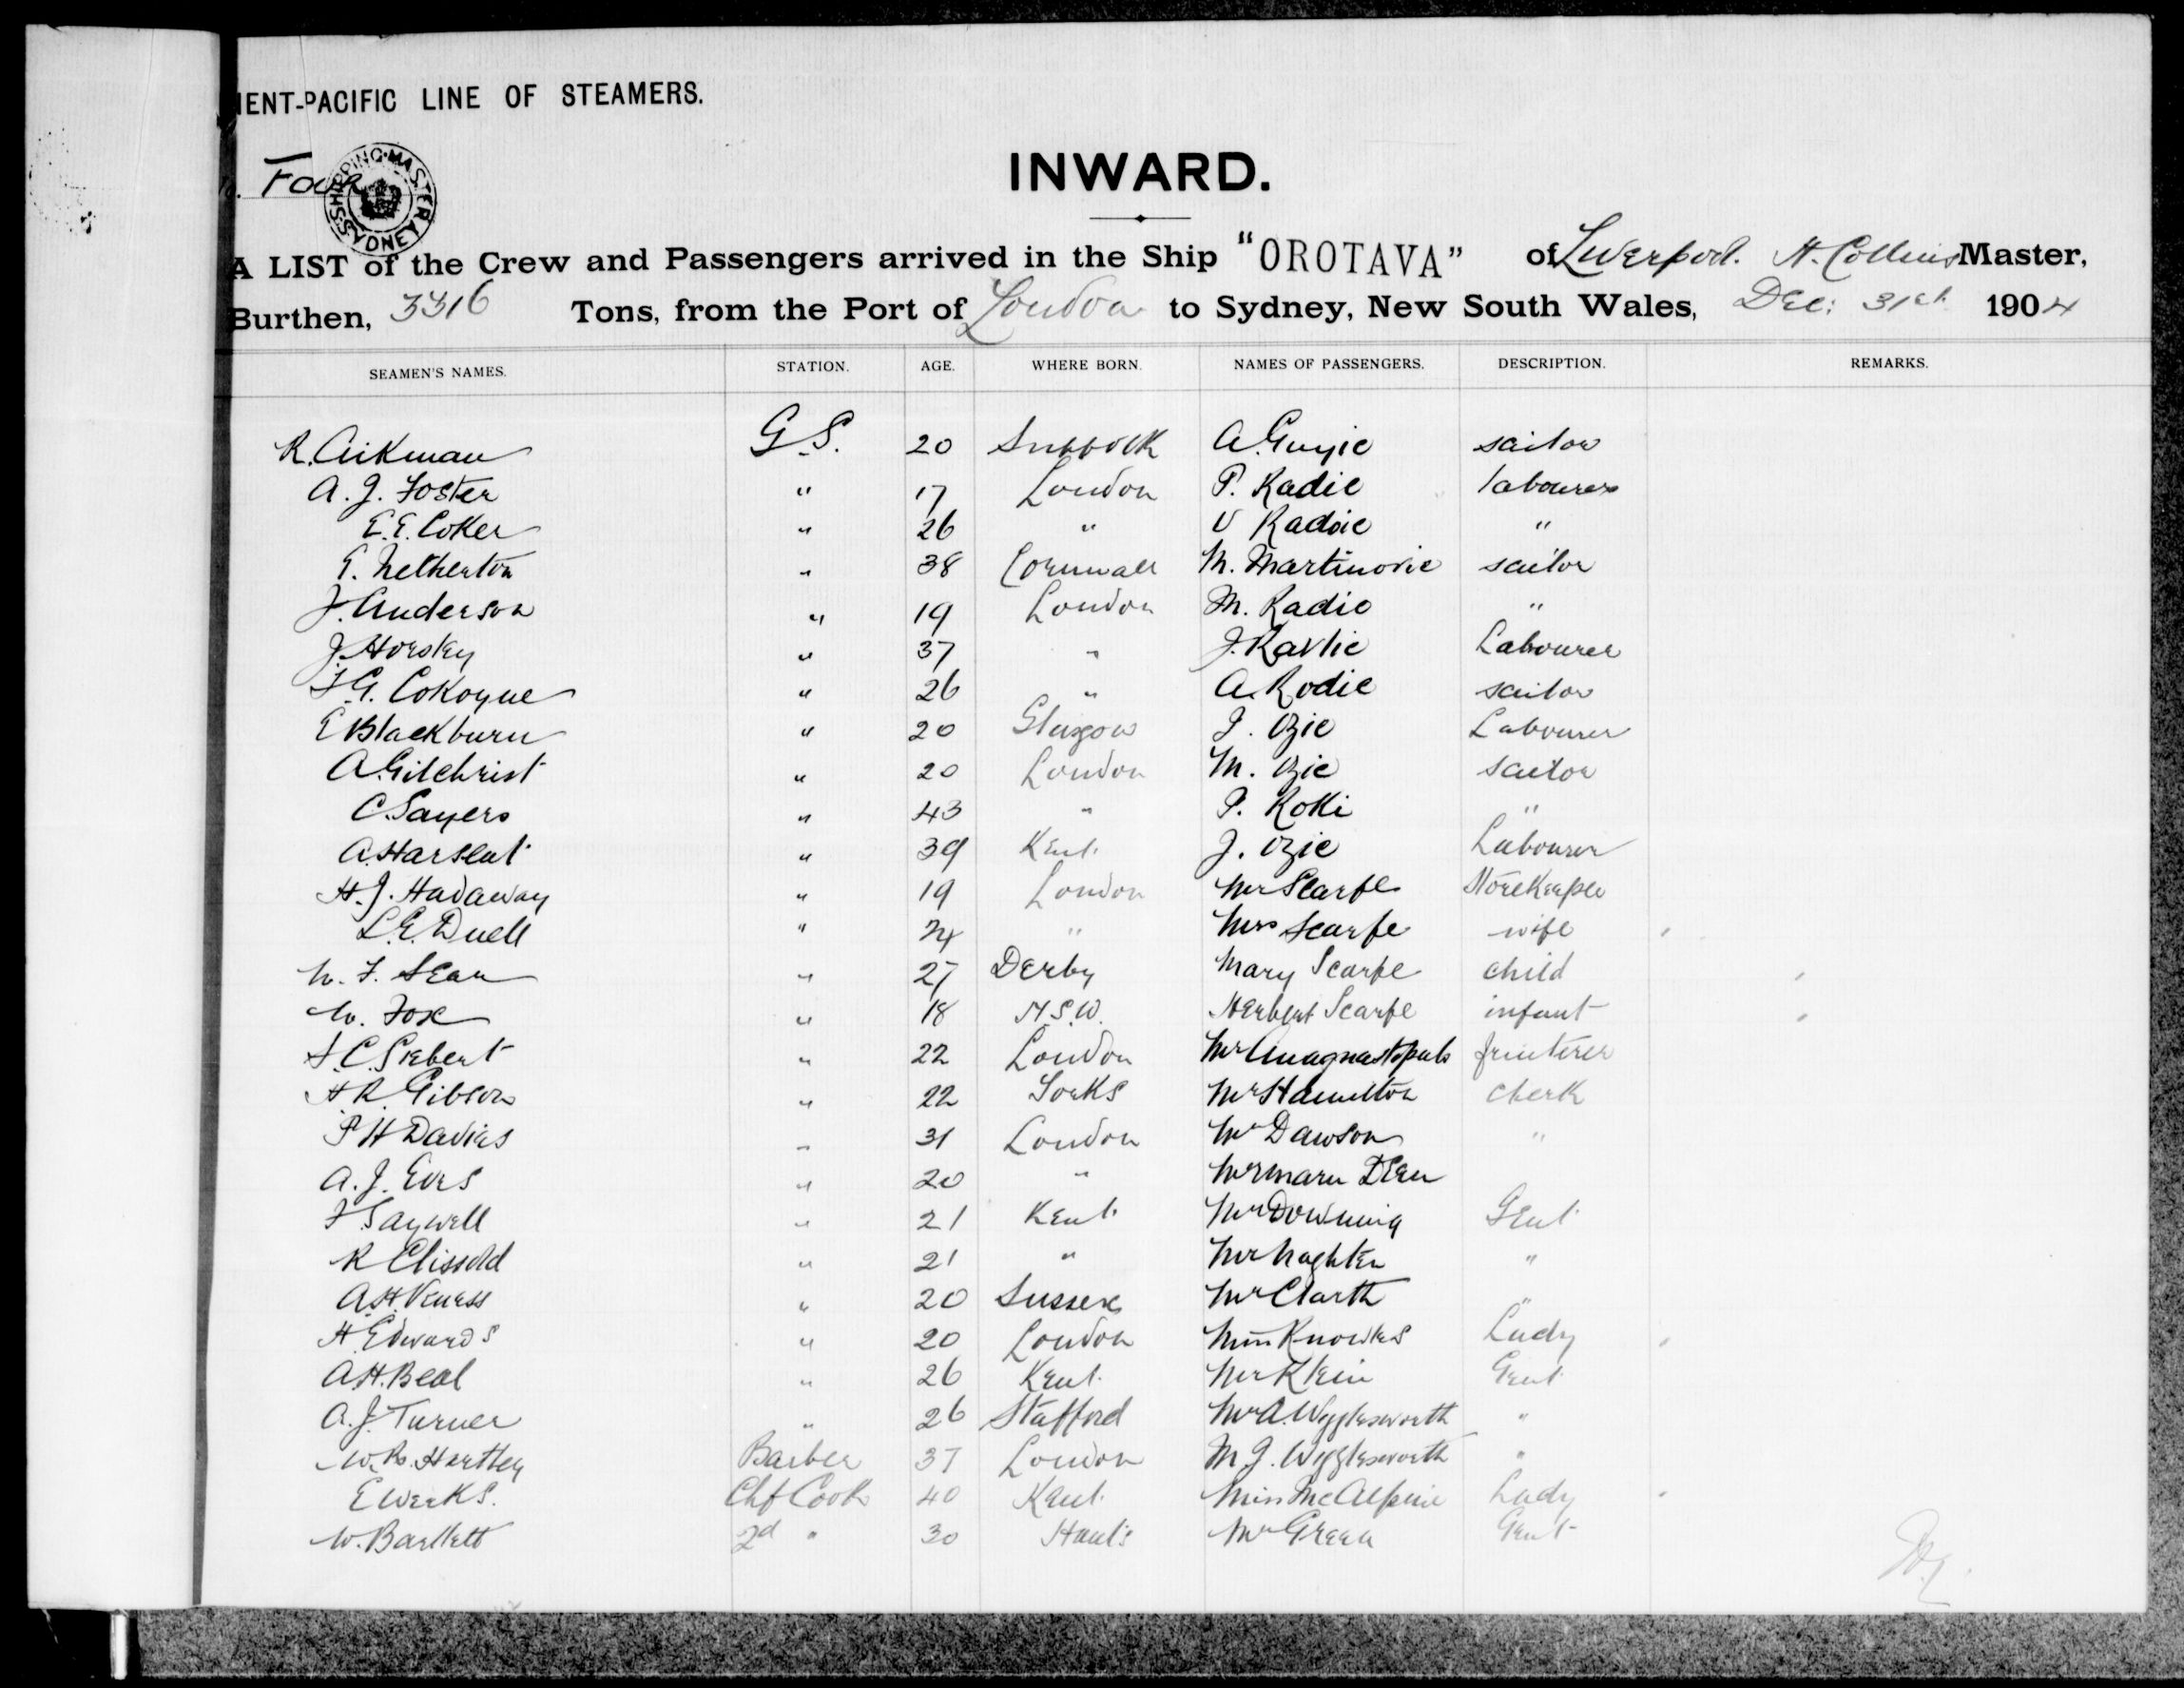 IENT-PACIFIC LINE OF STEAMERS.
Four
SHIPPING MASTER SYDNEY
INWARD.
A LIST of the Crew and Passengers arrived in the Ship "OROTAVA" of Liverpool. H. Collins Master,
Burthen, 3316 Tons, from the Port of London to Sydney, New South Wales, Dec: 31st 1904
SEAMEN'S NAMES. STATION. AGE. WHERE BORN. NAMES OF PASSENGERS. DESCRIPTION. REMARKS.
R. Aikman G.S. 20 Suffolk A. sailor
A. J. Foster " 17 London P. Radic labourer
E. E. Coker " 26 " V Radoic "
Netherton " 38 Cornwall M. Martinovic sailor
J. Anderson " 19 London M. Radic "
J. Horsley " 37 " J. Ravlic Labourer
F. G. Cokayne " 26 " A. Rodic sailor
E Blackburn " 20 Glasgow J. Ozic Labourer
A. Gilchrist " 20 London M. Ozic sailor
C. Sayers " 43 " P. Kokki "
A. Harslut " 39 Kent. J. Ozic Labourer
H. J. Hadaway " 19 London Mr Scarfe Storekeeper
L. E. Duell " 24 " Mrs Scarfe wife
W. F. Dean " 27 Derby Mary Scarfe child
W. Fox " 18 N.S.W. Herbert Scarfe infant
C. Siebert " 22 London Mr Anagnastopulo fruiterer
H. R. Gibson " 22 Yorks Mr Hamilton clerk
P H Davies " 31 London Mr Dawson "
A. J. Eves " 20 " Mr Dean
F Saywell " 21 Kent. Mr Downing Gent.
R Clissold " 21 " Mr Naghten "
A. H. Veness " 20 Sussex Mr Clarth "
H Edwards " 20 London Miss Knowles Lady
A. H. Beal " 26 Kent. Mr Klein Gent
A. J. Turner " 26 Stafford Mr A. Wigglesworth "
W. R. Hartley Barber 37 London M J. Wigglesworth "
E Weeks. Chf Cook 40 Kent. Miss McAlpine Lady
W. Bartlett 2d " 30 Hants Mr Green Gent